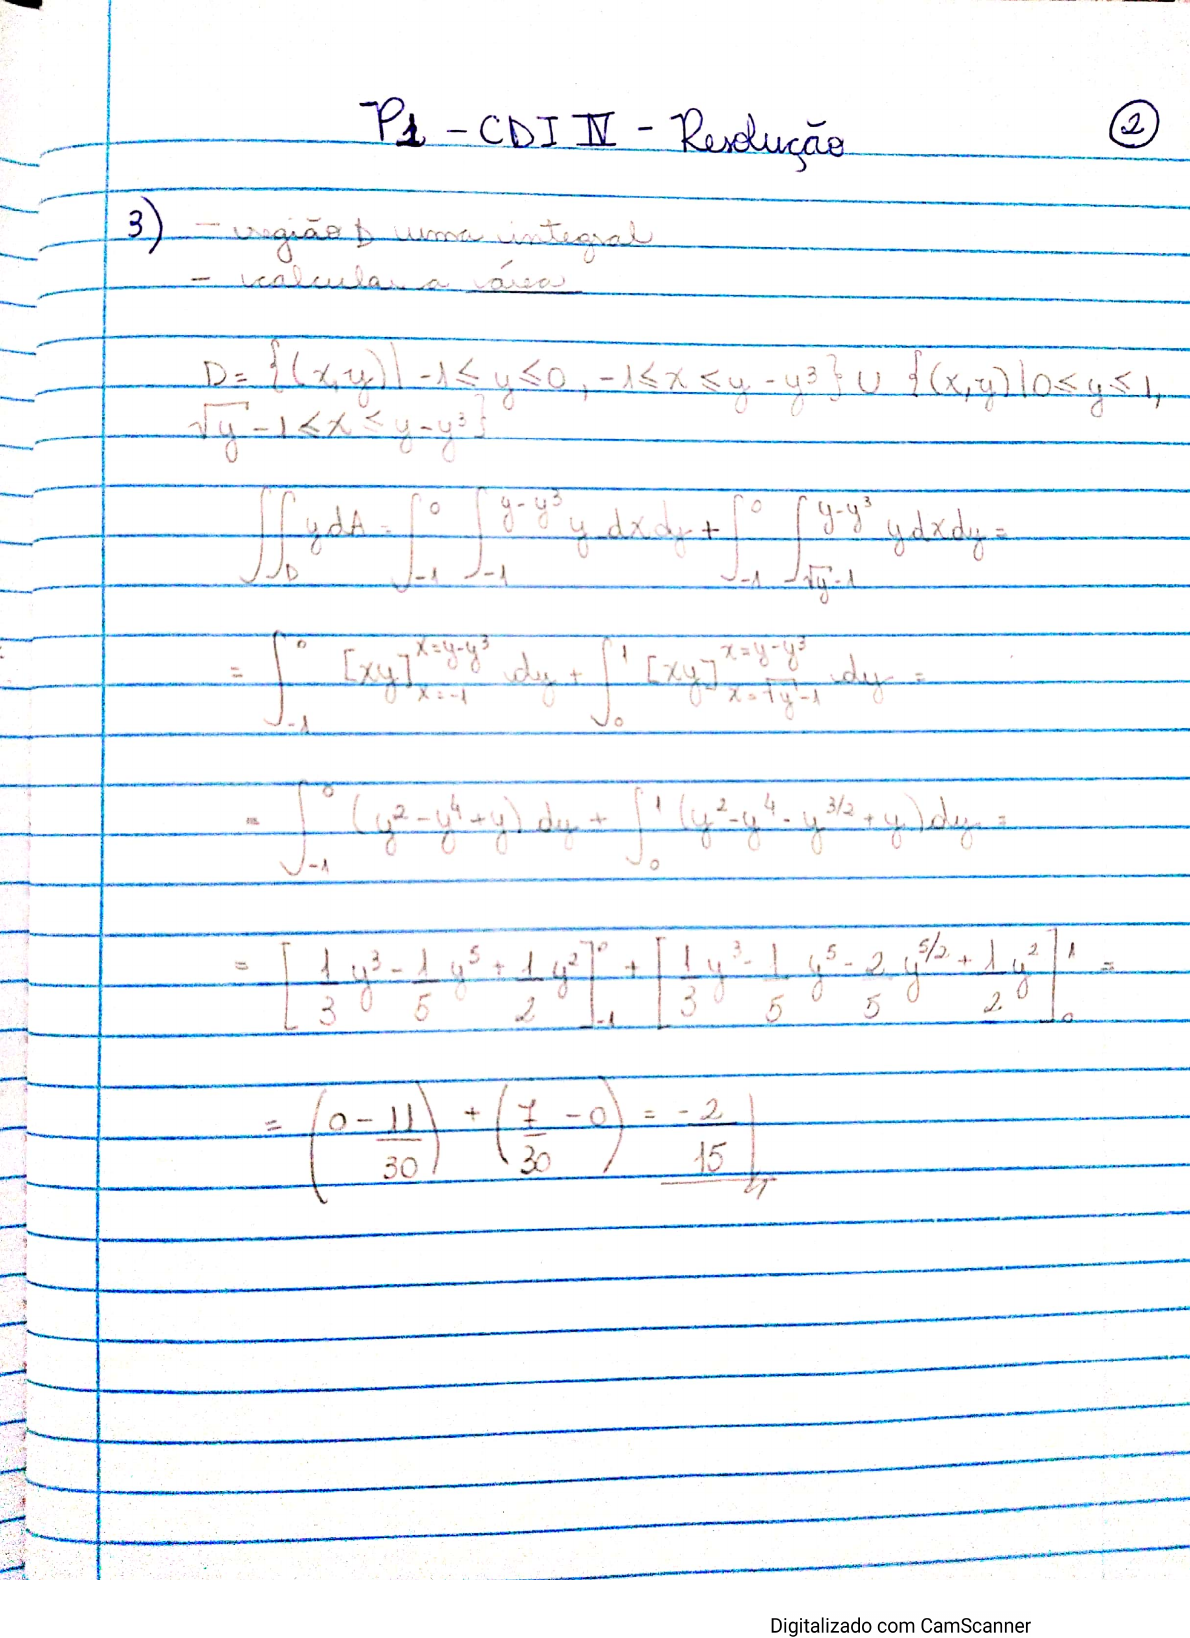 P1 - CDI IV - Resolução
2
3) - região D uma integral
- calcular a área
D = {(x,y) | -1 ≤ y ≤ 0, -1 ≤ x ≤ y - y³} ∪ {(x,y) | 0 ≤ y ≤ 1,
√y - 1 ≤ x ≤ y - y³}
∬_D y dA = ∫_{-1}^{0} ∫_{-1}^{y-y³} y dx dy + ∫_{-1}^{0} ∫_{√y-1}^{y-y³} y dx dy =
= ∫_{-1}^{0} [xy]_{x=-1}^{x=y-y³} dy + ∫_{0}^{1} [xy]_{x=√y-1}^{x=y-y³} dy =
= ∫_{-1}^{0} (y² - y⁴ + y) dy + ∫_{0}^{1} (y² - y⁴ - y^{3/2} + y) dy =
= [1/3 y³ - 1/5 y⁵ + 1/2 y²]_{-1}^{0} + [1/3 y³ - 1/5 y⁵ - 2/5 y^{5/2} + 1/2 y²]_{0}^{1} =
= (0 - 11/30) + (7/30 - 0) = -2/15
Digitalizado com CamScanner